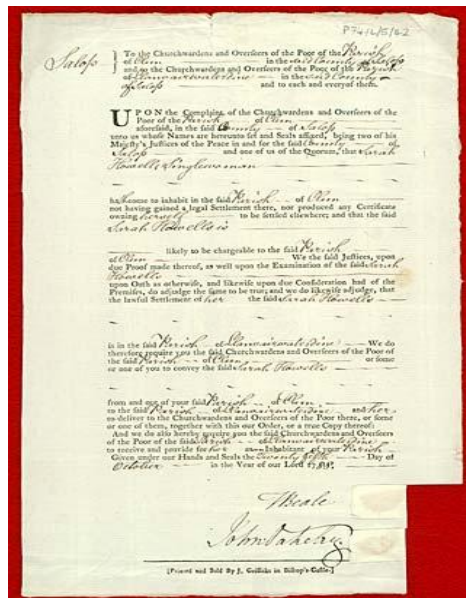 P74/L/5/42
Salop
To the Churchwardens and Overseers of the Poor of the Parish
of Clun in the said County of Salop
and to the Churchwardens and Overseers of the Poor of the Parish
of Llanvairwaterdine in the said County
of Salop and to each and every of them.
UPON the Complaint of the Churchwardens and Overseers of the
Poor of the Parish of Clun
aforesaid, in the said County of Salop
unto us whose Names are hereunto set and Seals affixed, being two of his
Majesty's Justices of the Peace in and for the said County of
Salop and one of us of the Quorum, that Sarah
Howells Singlewoman
ha come to inhabit in the said Parish of Clun
not having gained a legal Settlement there, nor produced any Certificate
owning herself to be settled elsewhere; and that the said
Sarah Howells is
likely to be chargeable to the said Parish
of Clun We the said Justices, upon
due Proof made thereof, as well upon the Examination of the said Sarah
Howells
upon Oath as otherwise, and likewise upon due Consideration had of the
Premises, do adjudge the same to be true; and we do likewise adjudge, that
the lawful Settlement of her the said Sarah Howells
is in the said Parish of Llanvairwaterdine We do
therefore require you the said Churchwardens and Overseers of the Poor of
the said Parish of Clun or some
or one of you to convey the said Sarah Howells
from and out of your said Parish of Clun
to the said Parish of Llanvairwaterdine and her
to deliver to the Churchwardens and Overseers of the Poor there, or some
or one of them, together with this our Order, or a true Copy thereof:
And we do also hereby require you the said Churchwardens and Overseers
of the Poor of the said Parish of Llanvairwaterdine
to receive and provide for her as Inhabitant of your Parish
Given under our Hands and Seals the Twenty fifth Day of
October in the Year of our Lord
T Beale
John
[Printed and Sold By J. Griffiths in Bishop's-Castle.]